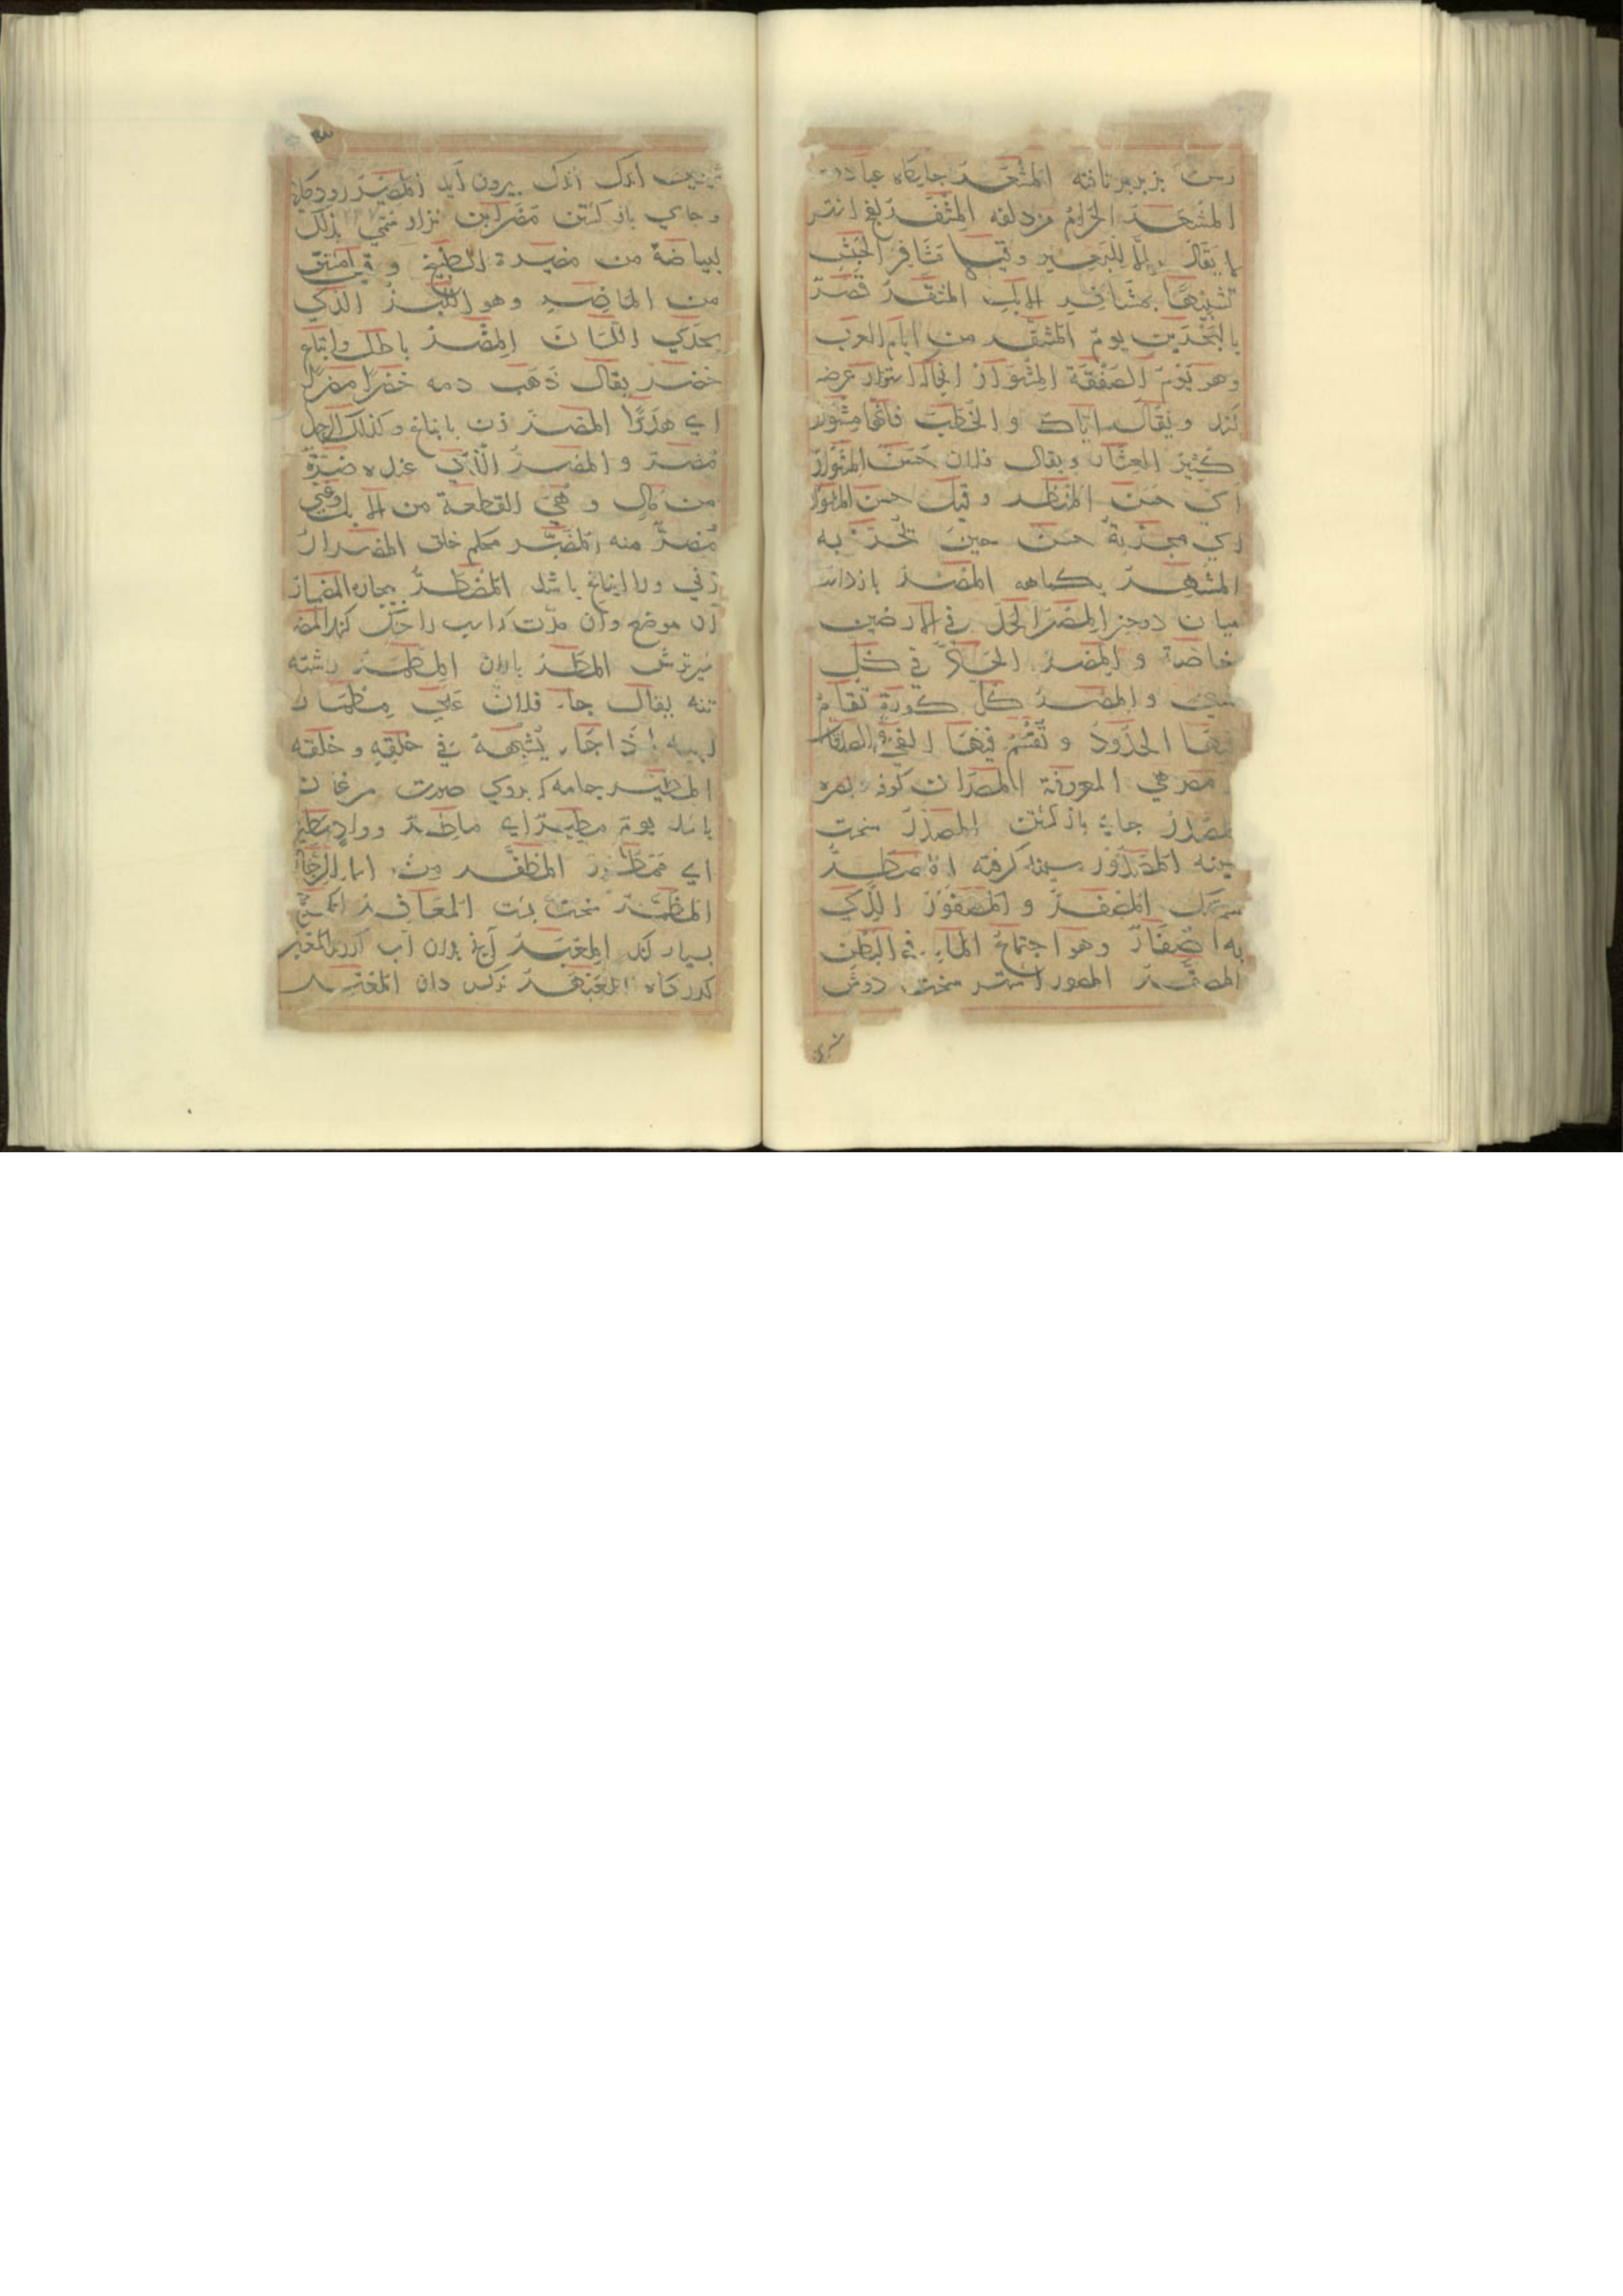 المشعر جایکاه عبادت
المشعر الحرام مزدلفه المشفر لفج اشتر
لا يقال الا للبعير وقيل مشافر الحبش
تشبيها بمشافر الابل المشقر قصر
بالبحرين يوم المشقر من ايام العرب
وهو يوم الصفقة المشوار انجاکه استور عرضه
کنند ويقال اياك والخطب فانها مشوار
كثير العثار ويقال فلان حسن المشوار
اي حسن المنظر وقيل حسن المشوار
اي مجربة حسن حين تجربه
المشهر بکماهه المصر بازداشت
میان دو چیز المصر الحد في الارضين
خاصة والمصر الحد في كل
شيء والمصر كل كورة تقام
فيها الحدود وتقسم فيها الفيء والصدقات
مصر هي المعروفة المصران کوفه بصره
المصدر جای بازکشتن المصدر سخت
سینه المصدور سینه کرفته
المصفر والمصفور الذي
به الصفار وهو اجتماع الماء في البطن
المصور اشتر سخت دوش
اندک اندک بیرون آید المصیر رودکانی
وجای باز کشتن مضر ابن نزار سمي بذلك
لبياضه من مضيرة الطبيخ وقيل اشتق
من الماضر وهو اللبن الذي
يحذي اللسان المضر باطل واتباع
خضر يقال ذهب دمه خضرا مضرا
اي هدرا المضر زن با بناغ وكذلك الرجل
مضر والمضر الذي عنده ضرة
من مال وهي القطعة من الابل وغني
مضر منه المضبر محکم خلق المضرار
زنی ورا ابناغ باشد المضطر بیچاره المضمار
آن موضع وآن مدت کداسب را خنک کنند
المطر باران المطمر رشته
تنه يقال جاء فلان على مطمار
ابيه اذا جاء يشبهه في خلقه وخلقه
المطير جامه که بروی صورت مرغان
باشد يوم مطير اي ماطر وواد مطير
اي ممطور المظفر
المظهر سخت پشت المعافر
بسیار کند المعبر آنچ بدان آب
کذرکاه العبهر نرکس دان المعتر